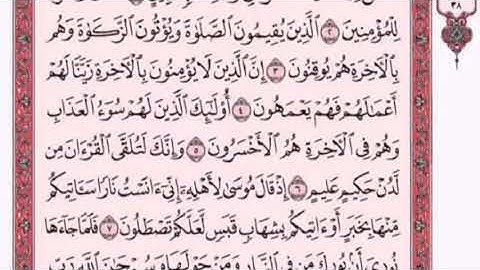 لِلْمُؤْمِنِينَ ٢ ٱلَّذِينَ يُقِيمُونَ ٱلصَّلَوٰةَ وَيُؤْتُونَ ٱلزَّكَوٰةَ وَهُم
بِٱلْـَٔاخِرَةِ هُمْ يُوقِنُونَ ٣ إِنَّ ٱلَّذِينَ لَا يُؤْمِنُونَ بِٱلْـَٔاخِرَةِ زَيَّنَّا لَهُمْ
أَعْمَـٰلَهُمْ فَهُمْ يَعْمَهُونَ ٤ أُو۟لَـٰٓئِكَ ٱلَّذِينَ لَهُمْ سُوٓءُ ٱلْعَذَابِ
وَهُمْ فِى ٱلْـَٔاخِرَةِ هُمُ ٱلْأَخْسَرُونَ ٥ وَإِنَّكَ لَتُلَقَّى ٱلْقُرْءَانَ مِن
لَّدُنْ حَكِيمٍ عَلِيمٍ ٦ إِذْ قَالَ مُوسَىٰ لِأَهْلِهِۦٓ إِنِّىٓ ءَانَسْتُ نَارًا سَـَٔاتِيكُم
مِّنْهَا بِخَبَرٍ أَوْ ءَاتِيكُم بِشِهَابٍ قَبَسٍ لَّعَلَّكُمْ تَصْطَلُونَ ٧ فَلَمَّا جَآءَهَا
نُودِىَ أَنۢ بُورِكَ مَن فِى ٱلنَّارِ وَمَنْ حَوْلَهَا وَسُبْحَـٰنَ ٱللَّهِ رَبِّ